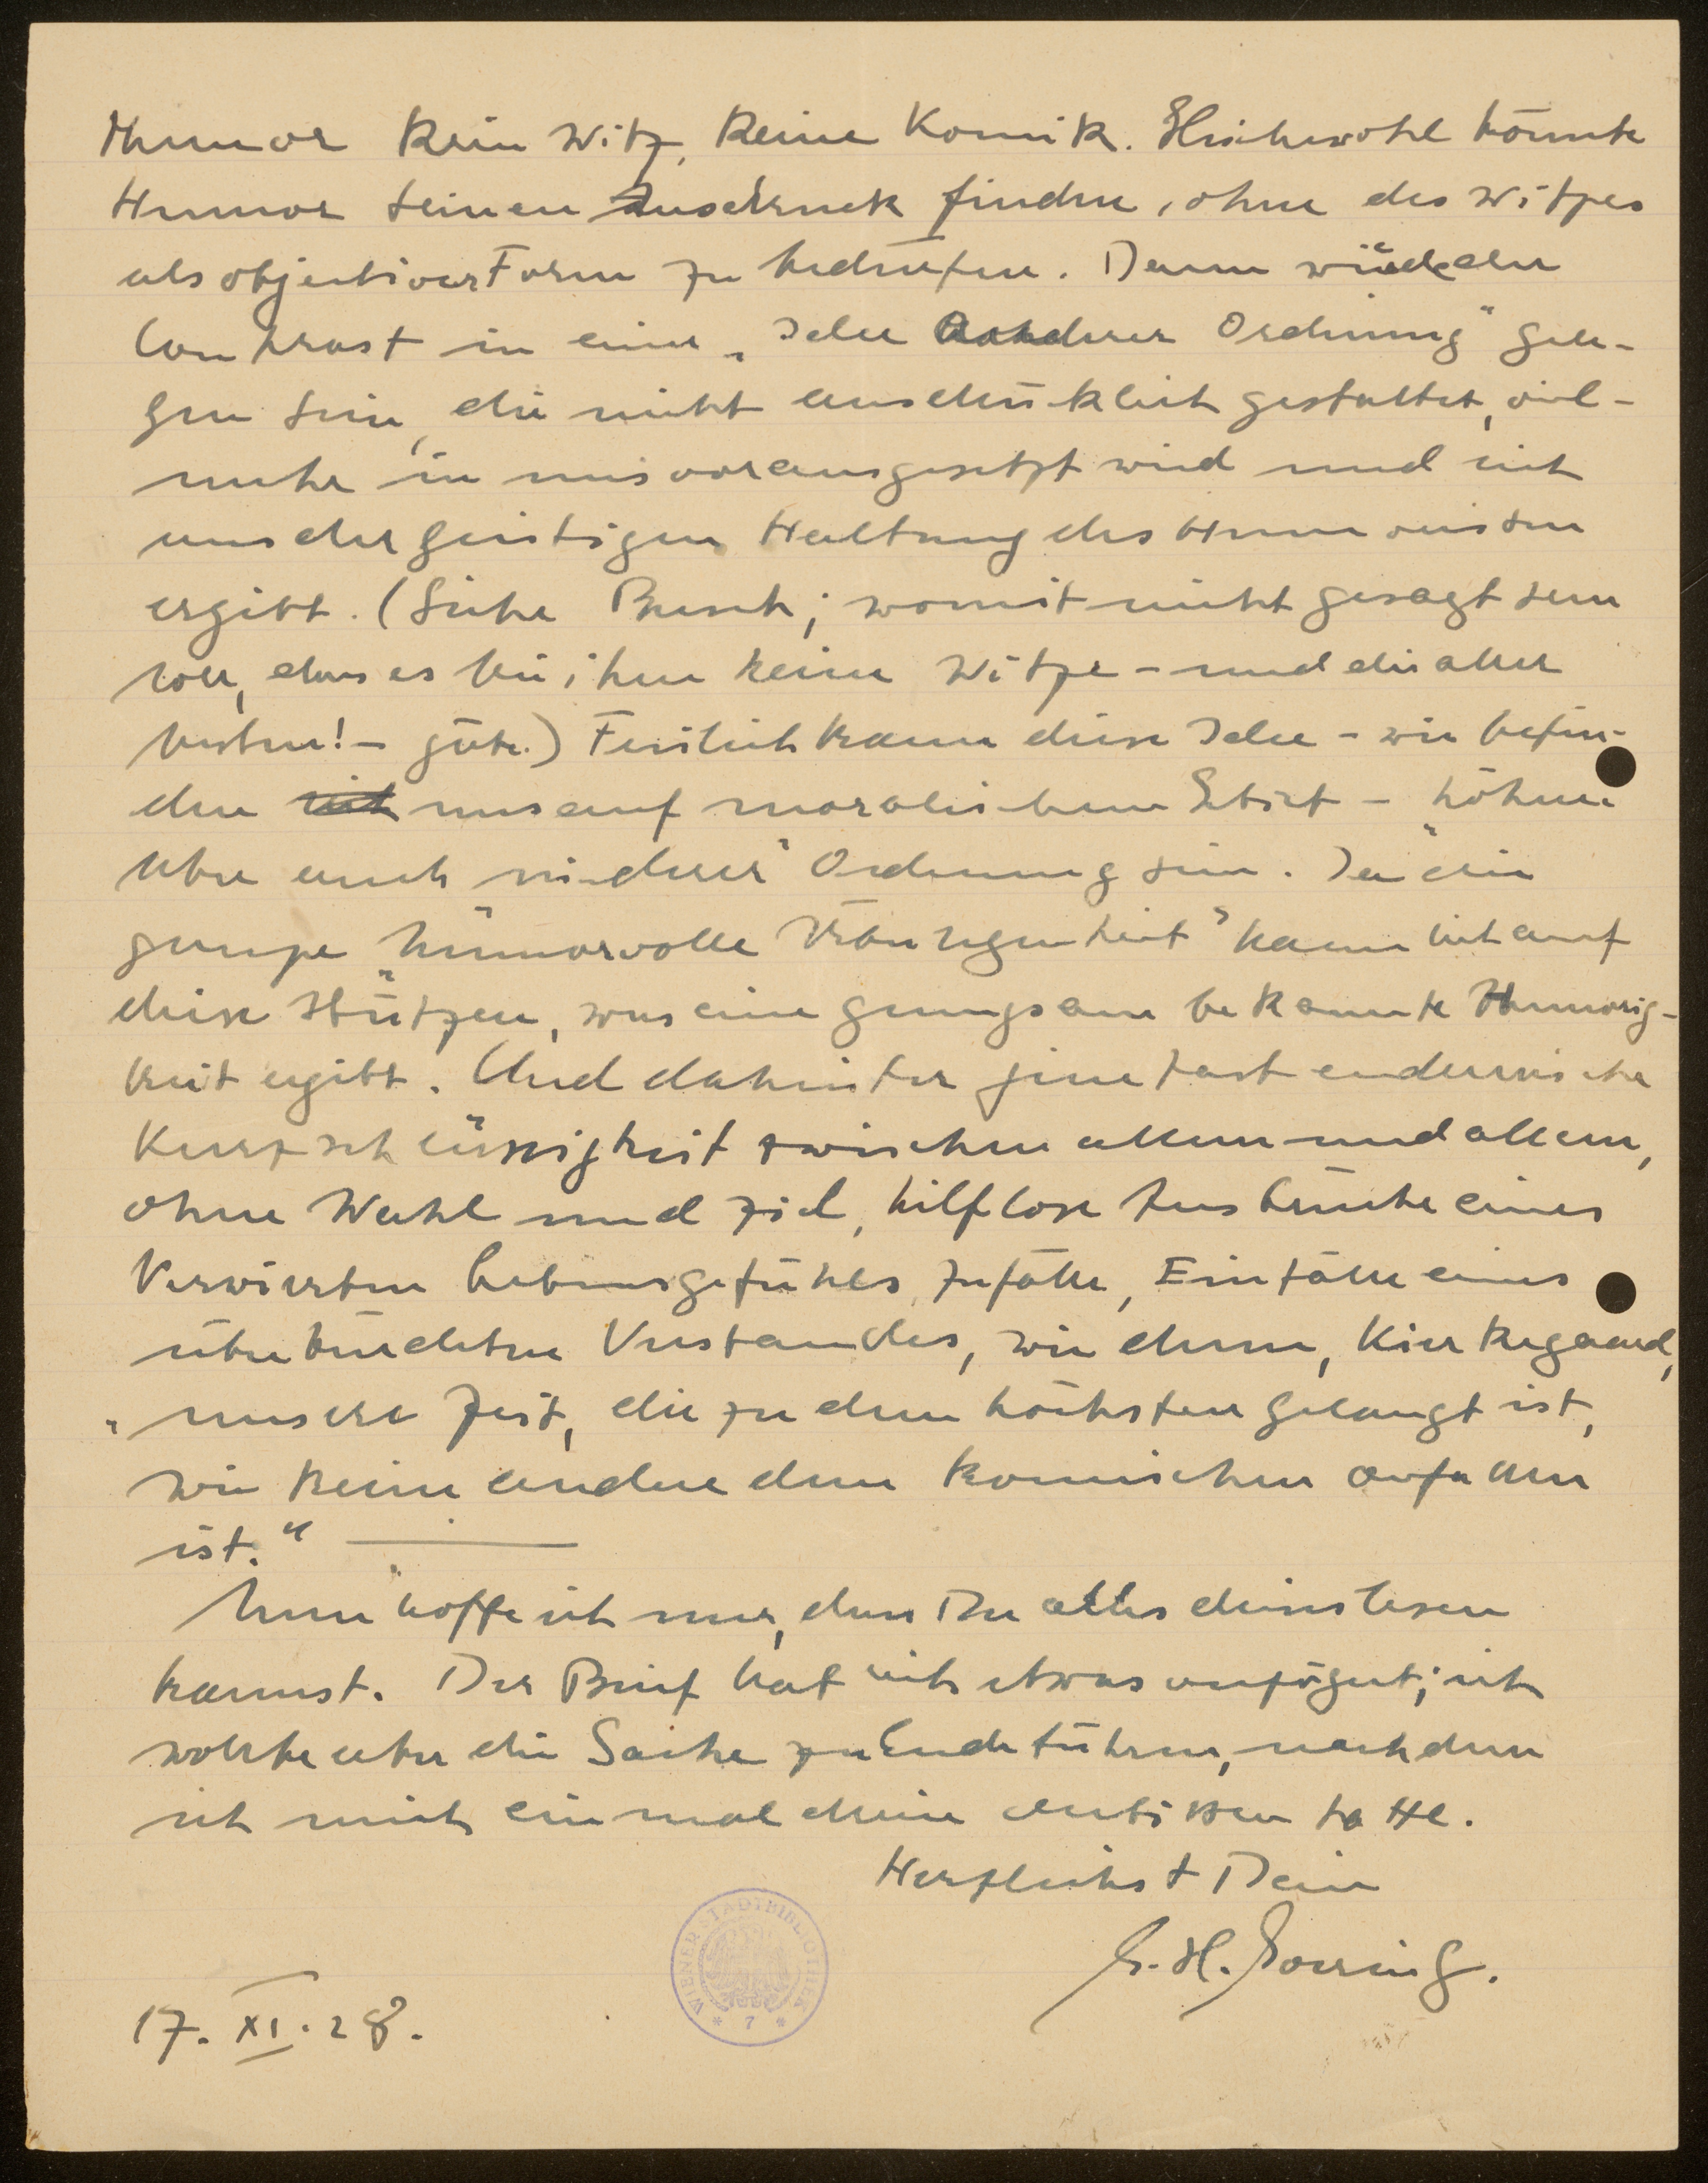 Humor kein Witz, keine Komik. Gleichwohl könnte
Humor seinen Ausdruck finden, ohne des Witzes
als objectiver Form zu bedürfen. Dann würde der
Contrast in einer „Idee anderer Ordnung" gele-
gen sein, die nicht ausdrücklich gestaltet, viel-
mehr in uns vorausgesetzt wird und sich
aus der geistigen Haltung des Humoristen
ergibt. (Siehe Busch; womit nicht gesagt sein
soll, dass es bei ihm keine Witze – und die aller
besten! – gäbe.) Freilich kann diese Idee – wir befin-
den uns auf moralischem Gebiet – höherer
aber auch niederer Ordnung sein. Ja die
ganze „humorvolle Überlegenheit" kann sich auf
diese stützen, was eine genugsam bekannte Humorig-
keit ergibt. Und dahinter jene fast endemische
Kurzschlüssigkeit zwischen allem und allem,
ohne Wahl und Ziel, hilflose Ausbrüche eines
verwirrten Lebensgefühles, Zufälle, Einfälle eines
überzüchteten Verstandes, wie denn, Kierkegaard,
„unsere Zeit, die zu dem höchsten gelangt ist,
wie keine andere dem komischen verfallen
ist."
Nun hoffe ich nur, dass Du alles dieses lesen
kannst. Der Brief hat sich etwas verzögert; ich
wollte aber die Sache zu Ende führen, nachdem
ich mich einmal darein verbissen hatte.
Herzlichst Dein
17. XI. 28.
WIENER STADTBIBLIOTHEK
* 7 *